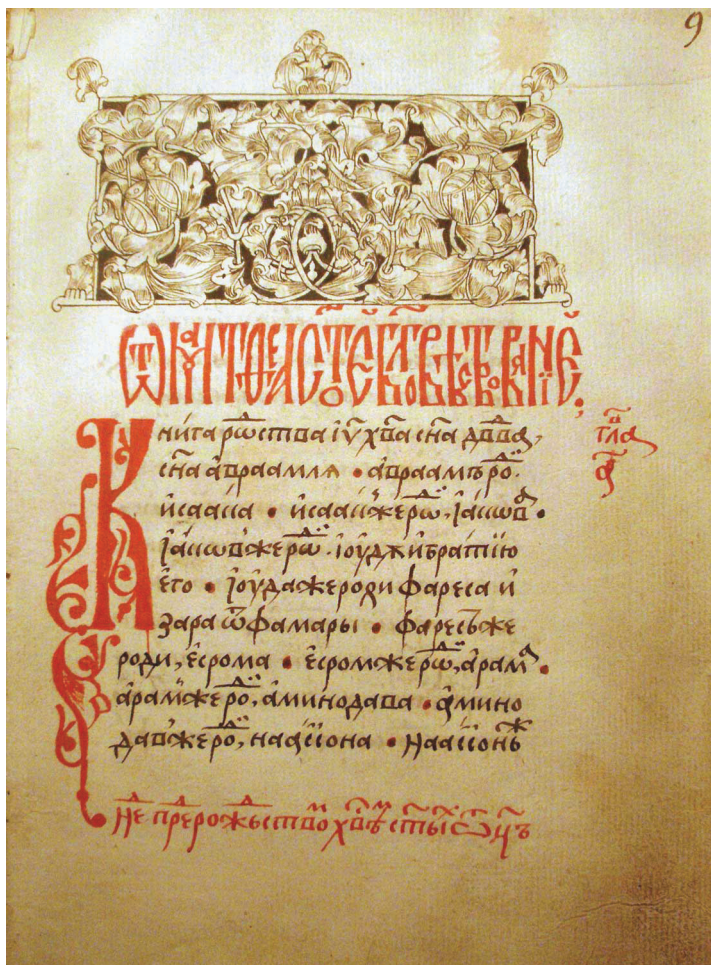 9
Ѿ маѳеа ст҃ое бл҃говѣствованїе
Книга рѡⷣства іѵ҃ хв҃а сн҃а дв҃два,
сн҃а авраамля • авраамъ роⷣ
исаака • исаакже рѡⷣ, іаковⷶ •
іаковже рѡⷣ. іоудꙋ и братїю
его • іоуда же роди фареса и
зара ѿ фамары • фаресъ же
роди, есрома • есромже рѡⷣ, арамⷶ •
арамже роⷣ, аминодава • амино
давже роⷣ, наассона • наассонъⷤ
гла҃
а҃
Неⷣ преⷣ рожⷣьствоⷨ хв҃ѣⷨ ст҃ыⷯ ѻ҃ц҃ъ